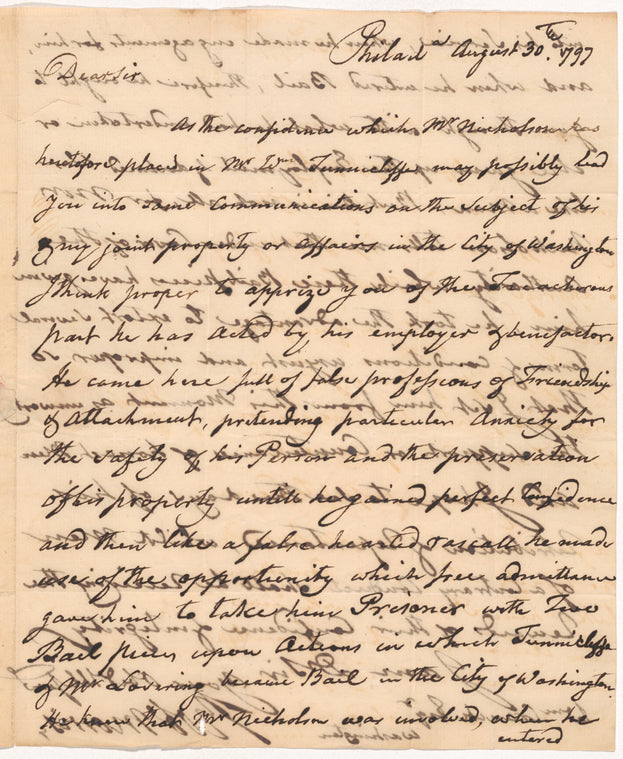 Philad.a August 30.th 1797
Dear Sir
As the confidence which Mr Nicholson has
heretofore placed in Mr Wm Tunnicliffe may possibly lead
You into some communications on the subject of his
& my joint property or affairs in the City of Washington
I think proper to apprize you of the Treacherous
part he has acted by his employer & benefactor.
He came here full of false professions of Friendship
& Attachment, pretending particular Anxiety for
the safety of his Person and the preservation
of his property untill he gained perfect Confidence
and then like a false hearted rascall he made
use of the opportunity which free admittance
gave him to take him Presoner with Two
Bail pieces upon Actions in which Tunnicliffe
& Mr Lovering became Bail in the City of Washington.
He knew that Mr Nicholson was involved, when he
entered